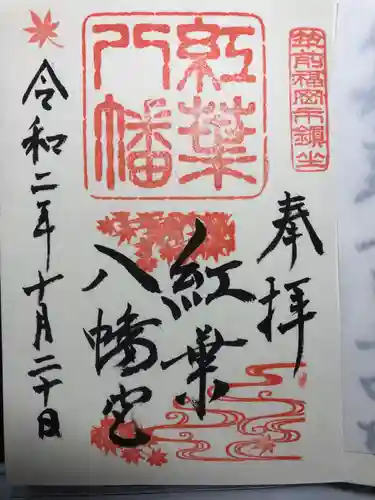 筑前福岡市鎮坐
奉拝
紅葉
八幡
紅葉
八幡宮
令和二年十月二十日